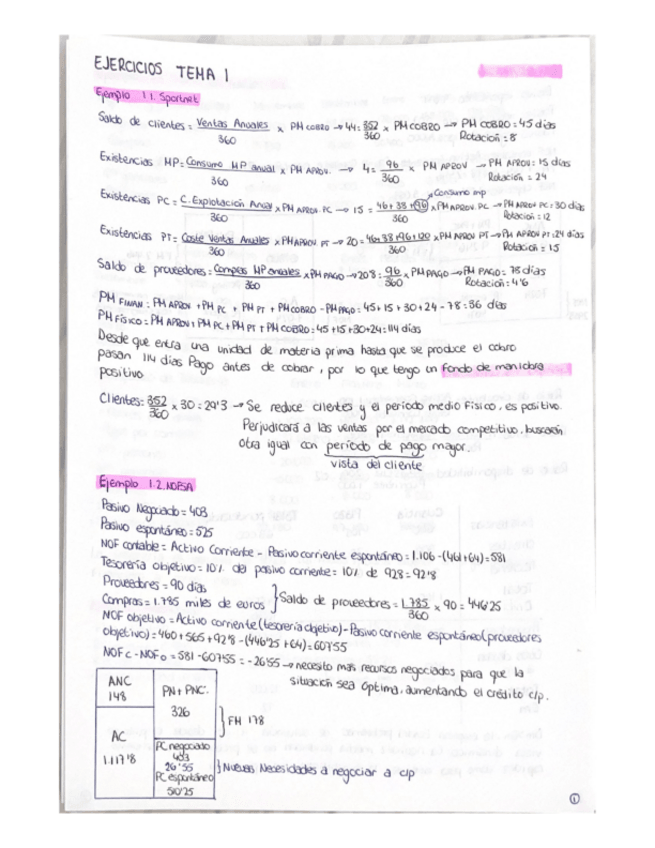 EJERCICIOS TEMA 1
Ejemplo 1.1. Sportnet
Saldo de clientes = Ventas Anuales / 360 x PM COBRO → 44 = 352/360 x PM COBRO → PM COBRO = 45 días
Rotación = 8
Existencias MP = Consumo MP anual / 360 x PM APROV. → 4 = 96/360 x PM APROV → PM APROV = 15 días
Rotación = 24
Consumo mp
Existencias PC = C. Explotación Anual / 360 x PM APROV. PC → 15 = 46+38+96/360 x PM APROV. PC → PM APROV PC = 30 días
Rotación = 12
Existencias PT = Coste Ventas Anuales / 360 x PM APROV PT → 20 = 46+38+96+120/360 x PM APROV PT → PM APROV PT = 24 días
Rotación = 15
Saldo de proveedores = Compras MP anuales / 360 x PM PAGO → 20'8 = 96/360 x PM PAGO → PM PAGO = 78 días
Rotación = 4'6
PM FINAN = PM APROV + PM PC + PM PT + PM COBRO - PM PAGO = 45+15+30+24-78 = 36 días
PM FÍSICO = PM APROV + PM PC + PM PT + PM COBRO = 45+15+30+24 = 114 días
Desde que entra una unidad de materia prima hasta que se produce el cobro
pasan 114 días Pago antes de cobrar, por lo que tengo un fondo de maniobra
positivo
Clientes: 352/360 x 30 = 29'3 → Se reduce clientes y el período medio físico, es positivo.
Perjudicará a las ventas por el mercado competitivo, buscarán
otra igual con período de pago mayor.
vista del cliente
Ejemplo 1.2. NOFSA
Pasivo Negociado = 403
Pasivo espontáneo = 525
NOF contable = Activo Corriente - Pasivo corriente espontáneo = 1.106 - (461+64) = 581
Tesorería objetivo = 10% del pasivo corriente = 10% de 928 = 92'8
Proveedores = 90 días
Compras = 1.785 miles de euros } Saldo de proveedores = 1.785/360 x 90 = 446'25
NOF objetivo = Activo corriente (tesorería objetivo) - Pasivo corriente espontáneo (proveedores
objetivo) = 460 + 565 + 92'8 - (446'25 + 64) = 607'55
NOFc - NOFo = 581 - 607'55 = -26'55 → necesito más recursos negociados para que la
situación sea óptima, aumentando el crédito c/p.
ANC
148
PN + PNC.
326
} FM 178
AC
1.117'8
PC negociado
403
26'55
PC espontáneo
510'25
} Nuevas Necesidades a negociar a c/p
1